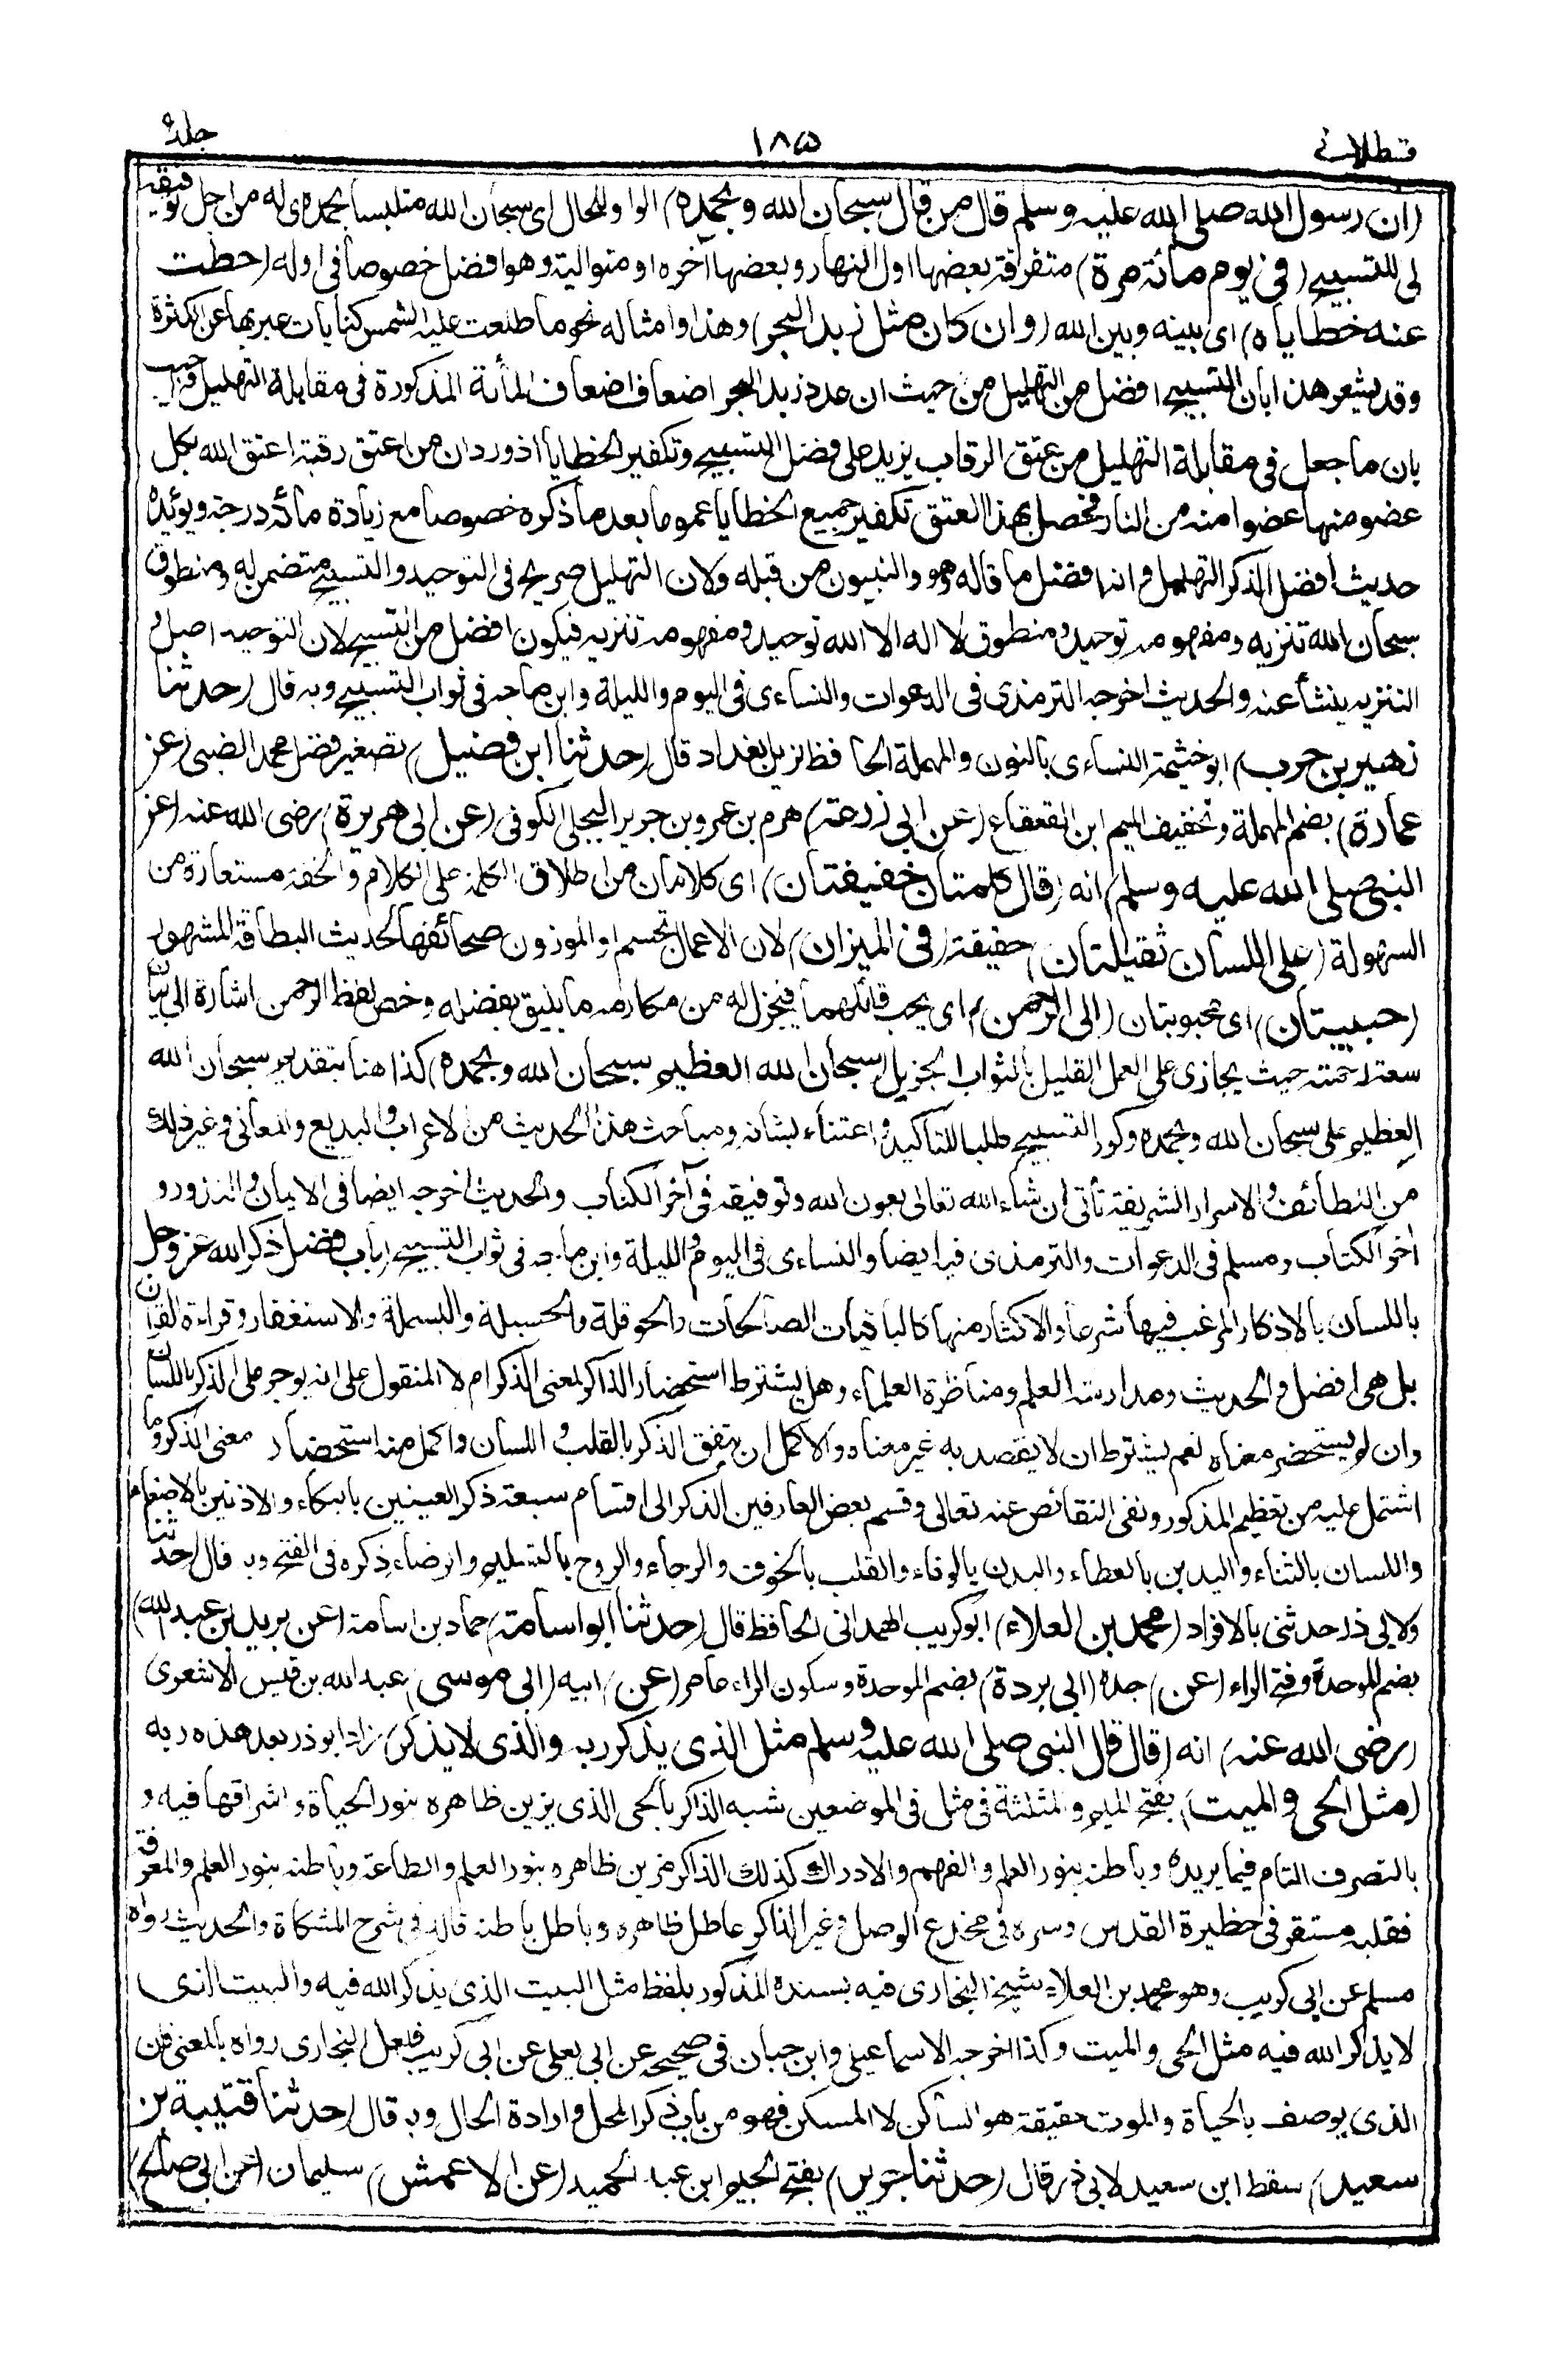 قسطلانی ١٨٥ جلد ٩
(ان رسول الله صلى الله عليه وسلم قال من قال سبحان الله وبحمده) الواو للحال اى سبحان الله متلبسا بحمدى له من اجل توفيقه
لى للتسبيح (فى يوم مائة مرة) متفرقة بعضها اول النهار وبعضها آخره او متوالية وهو افضل خصوصا فى اوله (حطت
عنه خطاياه) اى بينه وبين الله (وان كان مثل زبد البحر) وهذا وامثاله نحو ما طلعت عليه الشمس كنايات عبر بها عن الكثرة
وقد يشعر هذا بان التسبيح افضل من التهليل من حيث ان عدد زبد البحر اضعاف اضعاف المأئة المذكورة فى مقابلة التهليل فاجيب
بان ما جعل فى مقابلة التهليل من عتق الرقاب يزيد على فضل التسبيح وتكفير الخطايا اذ ورد ان من اعتق رقبة اعتق الله بكل
عضو منها عضوا منه من النار فحصل بهذا العتق تكفير جميع الخطايا عموما بعد ما ذكره خصوصا مع زيادة مائة درجة ويؤيده
حديث افضل الذكر التهليل وانه افضل ما قاله هو والنبيون من قبله ولان التهليل صريح فى التوحيد والتسبيح متضمن له ومنطوق
سبحان الله تنزيه ومفهومه توحيد ومنطوق لا اله الا الله توحيد ومفهومه تنزيه فيكون افضل من التسبيح لان التوحيد اصل و
التنزيه ينشأ عنه والحديث اخرجه الترمذى فى الدعوات والنساءى فى اليوم والليلة وابن ماجه فى ثواب التسبيح وبه قال (حدثنا
زهير بن حرب) ابو خيثمة النساءى بالنون والمهملة الحافظ نزيل بغداد قال (حدثنا ابن فضيل) تصغير فضل محمد الضبى (عن
عمارة) بضم المهملة وتخفيف الميم ابن القعقاع (عن ابى زرعة) هرم بن عمرو بن جرير البجلى الكوفى (عن ابى هريرة) رضى الله عنه (عن
النبى صلى الله عليه وسلم) انه (قال كلمتان خفيفتان) اى كلامان من اطلاق الكلمة على الكلام والخفة مستعارة من
السهولة (على اللسان ثقيلتان) حقيقة (فى الميزان) لان الاعمال تجسم او الموزون صحائفها لحديث البطاقة المشهور
(حبيبتان) اى محبوبتان (الى الرحمن) اى يحب قائلهما فيجزل له من مكارمه ما يليق بفضله وخص لفظ الرحمن اشارة الى بيان
سعة رحمته حيث يجازى على العمل القليل بالثواب الجزيل (سبحان الله العظيم سبحان الله وبحمده) كذا هنا بتقديم سبحان الله
العظيم على سبحان الله وبحمده وكرر التسبيح طلبا للتاكيد واعتناء بشانه ومباحث هذا الحديث من الاعراب والبديع والمعانى وغير ذلك
من اللطائف والاسرار الشريفة تأتى ان شاء الله تعالى بعون الله وتوفيقه فى آخر الكتاب والحديث اخرجه ايضا فى الايمان والنذور و
اخر الكتاب ومسلم فى الدعوات والترمذى فيه ايضا والنساءى فى اليوم والليلة وابن ماجه فى ثواب التسبيح (باب فضل ذكر الله عز وجل)
باللسان بالاذكار المرغب فيها شرعا والاكثار منها كالباقيات الصالحات والحوقلة والحسبلة والبسملة والاستغفار وقراءة القرآن
بل هى افضل والحديث ومدارسة العلم ومناظرة العلماء وهل يشترط استحضار الذاكر لمعنى الذكر ام لا المنقول على انه يوجر على الذكر باللسان
وان لم يستحضر معناه نعم يشترط ان لا يقصد به غير معناه والاكمل ان يتفق الذكر بالقلب و اللسان واكمل منه استحضار معنى الذكر وما
اشتمل عليه من تعظيم المذكور ونفى النقائص عنه تعالى وقسم بعض العارفين الذكر الى اقسام سبعة ذكر العينين بالبكاء والاذنين بالاصغاء
واللسان بالثناء واليدين بالعطاء والبدن بالوفاء والقلب بالخوف والرجاء والروح بالتسليم والرضاء ذكره فى الفتح وبه قال (حدثنا
ولابى ذر حدثنى بالافراد (محمد بن العلاء) ابو كريب الهمدانى الحافظ قال (حدثنا ابو اسامة) حماد بن اسامة (عن بريد بن عبد الله)
بضم الموحدة وفتح الراء (عن) جده (ابى بردة) بضم الموحدة وسكون الراء عامر (عن) ابيه (ابى موسى) عبد الله بن قيس الاشعرى
(رضى الله عنه) انه (قال قال النبى صلى الله عليه وسلم مثل الذى يذكر ربه والذى لا يذكر) زاد ابو ذر بعد هذه ربه
(مثل الحى والميت) بفتح الميم والمثلثة فى مثل فى الموضعين شبه الذاكر بالحى الذى يزين ظاهره بنور الحياة واشراقها فيه و
بالتصرف التام فيما يريده وباطنه بنور العلم والفهم والادراك كذلك الذاكر مزين ظاهره بنور العلم والطاعة وباطنه بنور العلم والمعرفة
فقلبه مستقر فى حظيرة القدس وسره فى مخدع الوصل وغير الذاكر عاطل ظاهره وباطل باطنه قاله فى شرح المشكاة والحديث رواه
مسلم عن ابى كريب وهو محمد بن العلاء شيخ البخارى فيه بسنده المذكور بلفظ مثل البيت الذى يذكر الله فيه والبيت الذى
لا يذكر الله فيه مثل الحى والميت وكذا اخرجه الاسماعيلى وابن حبان فى صحيحه عن ابى يعلى عن ابى كريب فلعل البخارى رواه بالمعنى فان
الذى يوصف بالحياة والموت حقيقة هو الساكن لا المسكن فهو من باب ذكر المحل وارادة الحال وبه قال (حدثنا قتيبة بن
سعيد) سقط ابن سعيد لابى ذر قال (حدثنا جرير) بفتح الجيم ابن عبد الحميد (عن الاعمش) سليمان (عن ابى صالح)